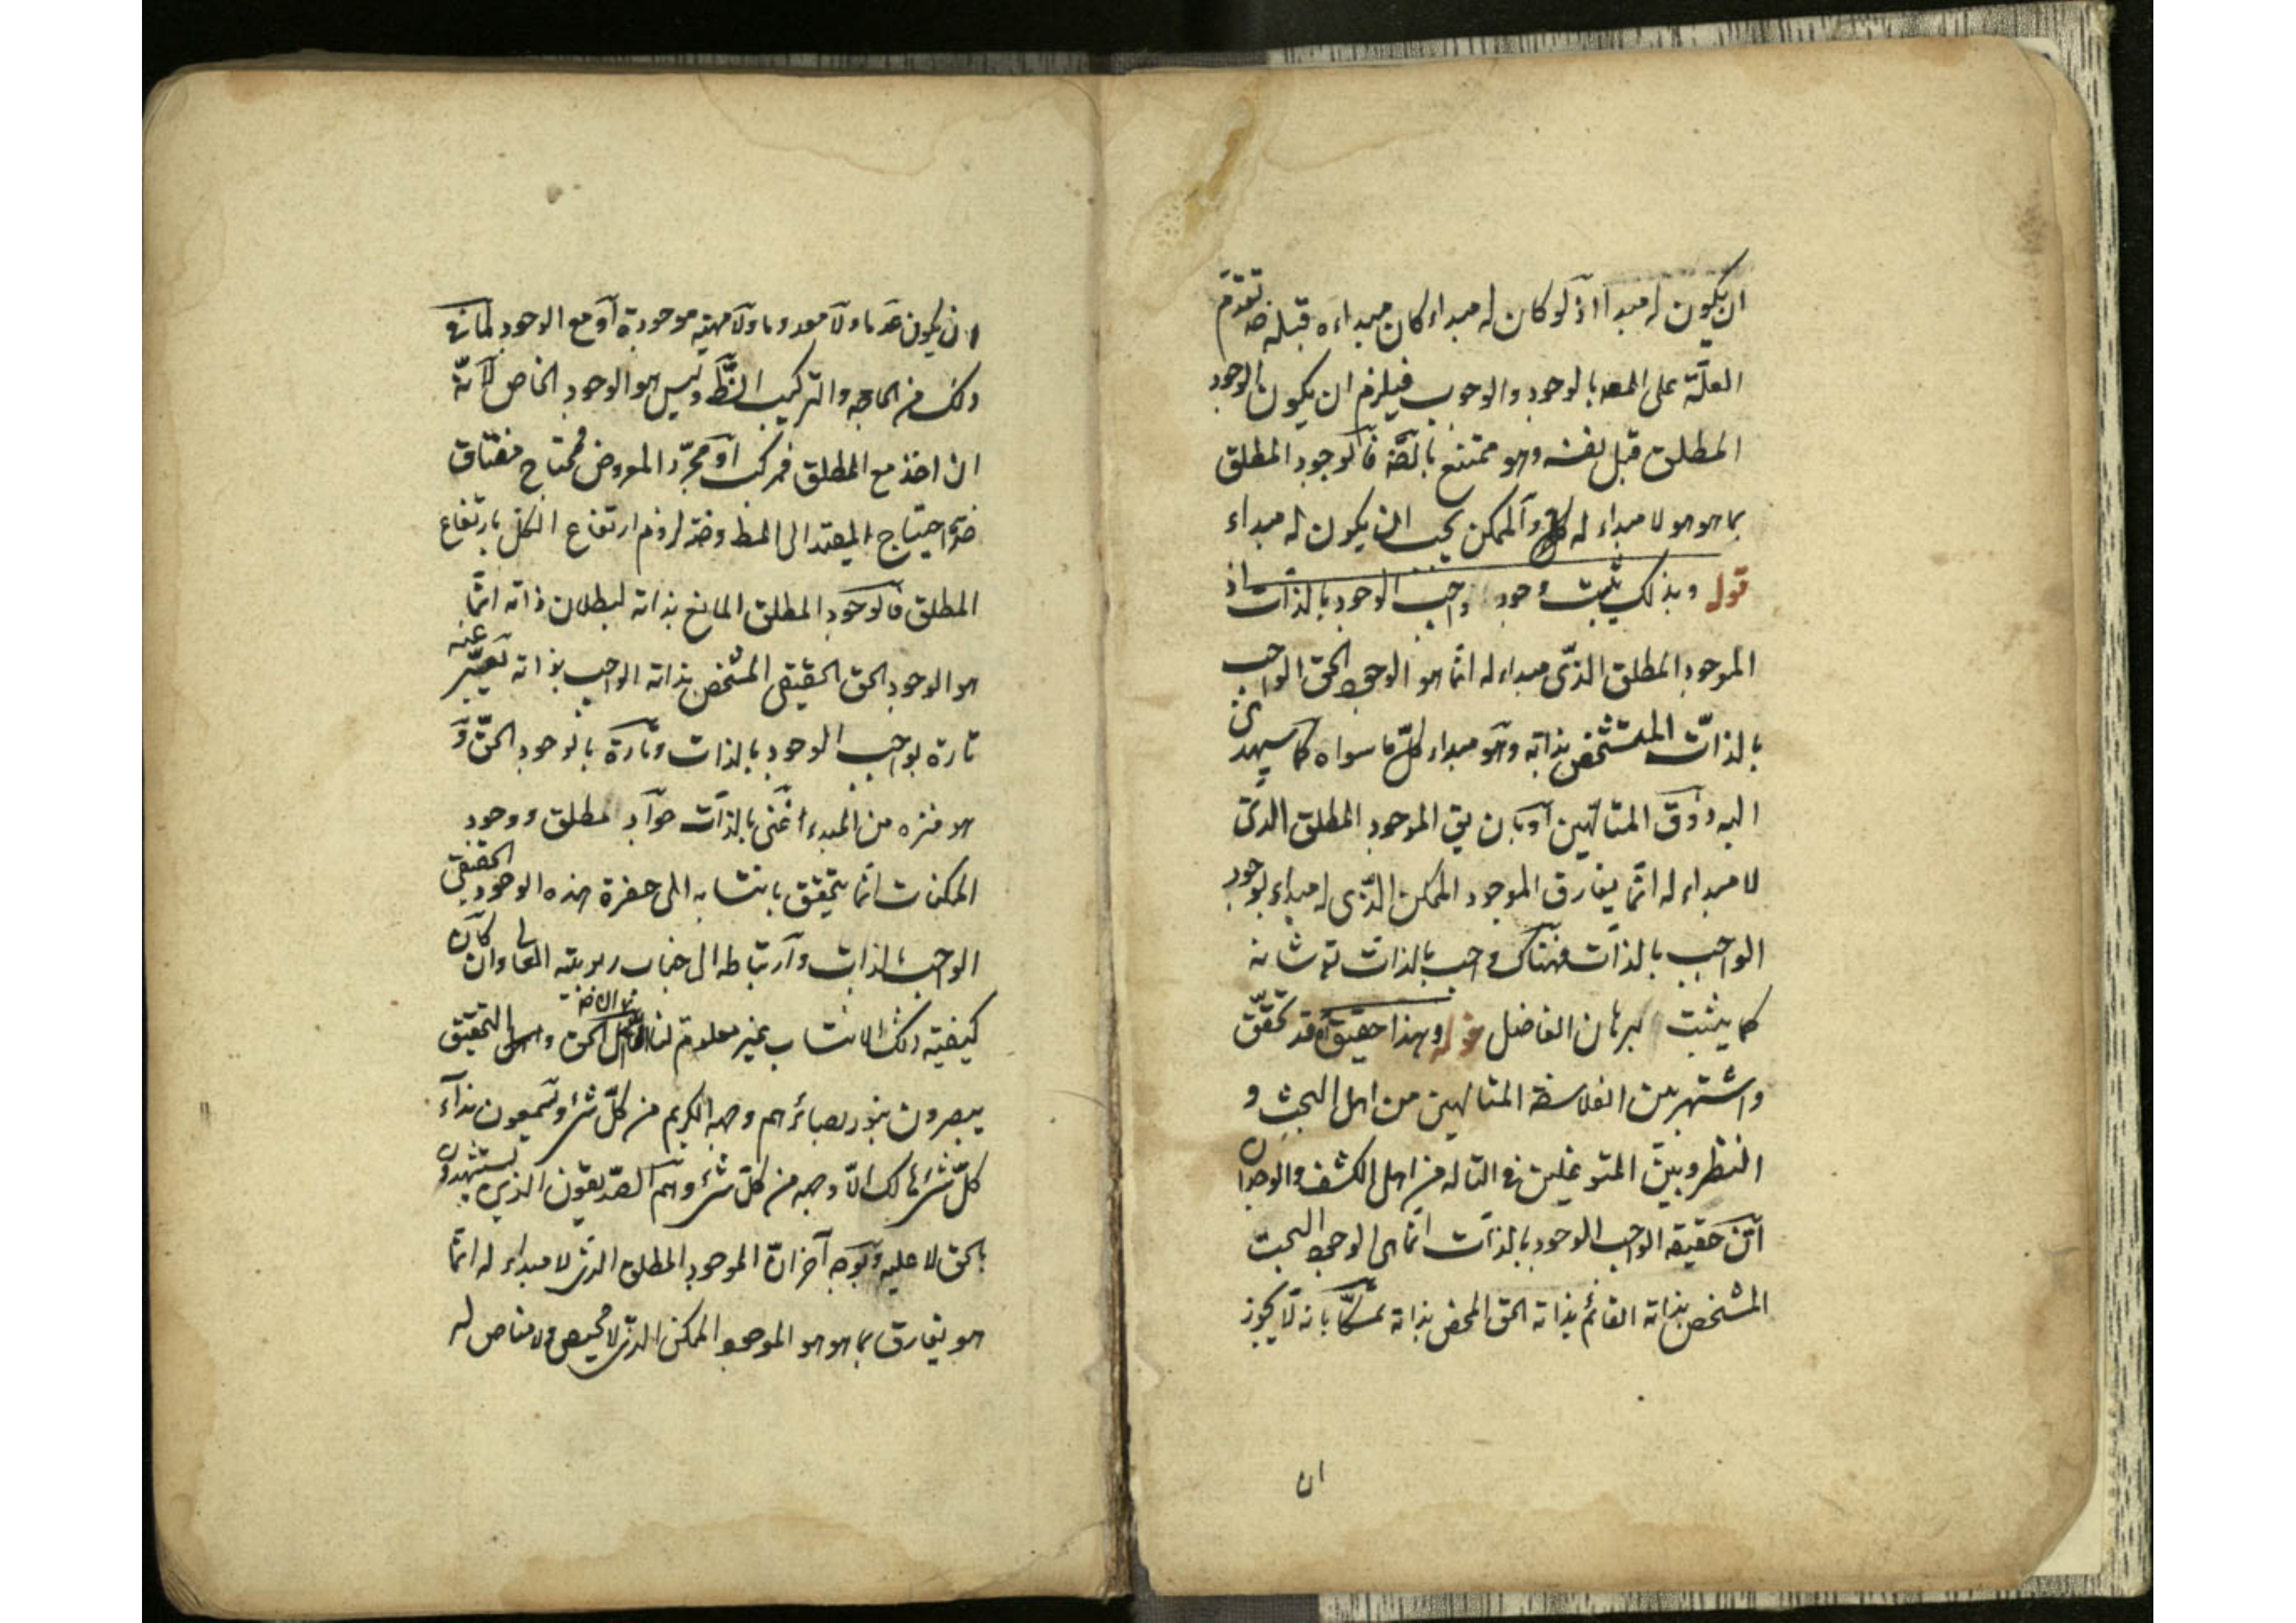 ان يكون له مبدأ اذ لو كان له مبداء كان مبداءه قبله ضه تقدم
العلّة على المعه بالوجود والوجوب فيلزم ان يكون الوجود
المطلق قبل نفسه وهو ممتنع بالضّه فالوجود المطلق
بما هو هو لا مبداء له والممكن يجب ان يكون له مبداء
قوله وبذلك يثبت وجود واجب الوجود بالذات اذ
الموجود المطلق الذى مبداء له انّما هو الوجود الحق الواجب
بالذات المتشخص بذاته وهو مبداء كلّ ما سواه كما سيهدى
اليه ذوق المتالهين او بان يق الموجود المطلق الذى
لا مبداء له انّما يفارق الموجود الممكن الذّى له مبداء بوجود
الواجب بالذات فهناك واجب بالذات تع شانه
كما يثبت برهان الفاضل قوله وهذا حقيق قد تحقّق
واشتهر بين الفلاسفة المتالهين من اهل البحث و
النظر وبين المتوغلين في التاله من اهل الكشف والوجدان
انّ حقيقه الواجب الوجود بالذات انّما هى الوجود البحت
المشخص بذاته القائم بذاته الحق المحض بذاته تمسّكا بانه لا يجوز
ان
ان يكون عدما ولا معدوما ولا مهية موجودة او مع الوجود لما في
ذلك من الحاجه والتركيب وليس هو الوجود الخاص لانّه
ان اخذ مع المطلق فمركب او مجرّد المعروض فمحتاج
ضرّة احتياج المقيد الى المط وضرّة لزوم ارتفاع الكل بارتفاع
المطلق فالوجود المطلق المانع بذاته لبطلان ذاته انّما
هو الوجود الحق الحقيقى المشخص بذاته الواجب بذاته يعبّر عنه
تارة بواجب الوجود بالذات وتارة بالوجود الحقّ و
هو منزه من المبدء اغنى بالذات المطلق ووجود
الممكنات انّما يتحقق بانتسابه الى حضرة هذه الوجود الحقيقى
الواجب بالذات وارتباطه الى جناب ربوبيته العالى وان كان
كيفية ذلك الانتساب غير معلومة لنا الحق والتحقيق
يبصرون بنور بصائرهم وجهه الكريم من كلّ شئ ويسمعون نداء
كلّ شئ هالك الاّ وجهه من كلّ شئ وهم الصدّيقون الذين يستشهدون
بالحق لا عليه وبوجه آخر انّ الموجود المطلق الذى لا مبداء له انّما
هو يفارق بما هو هو الموجود الممكن الذى لا محيص ولا مناص له